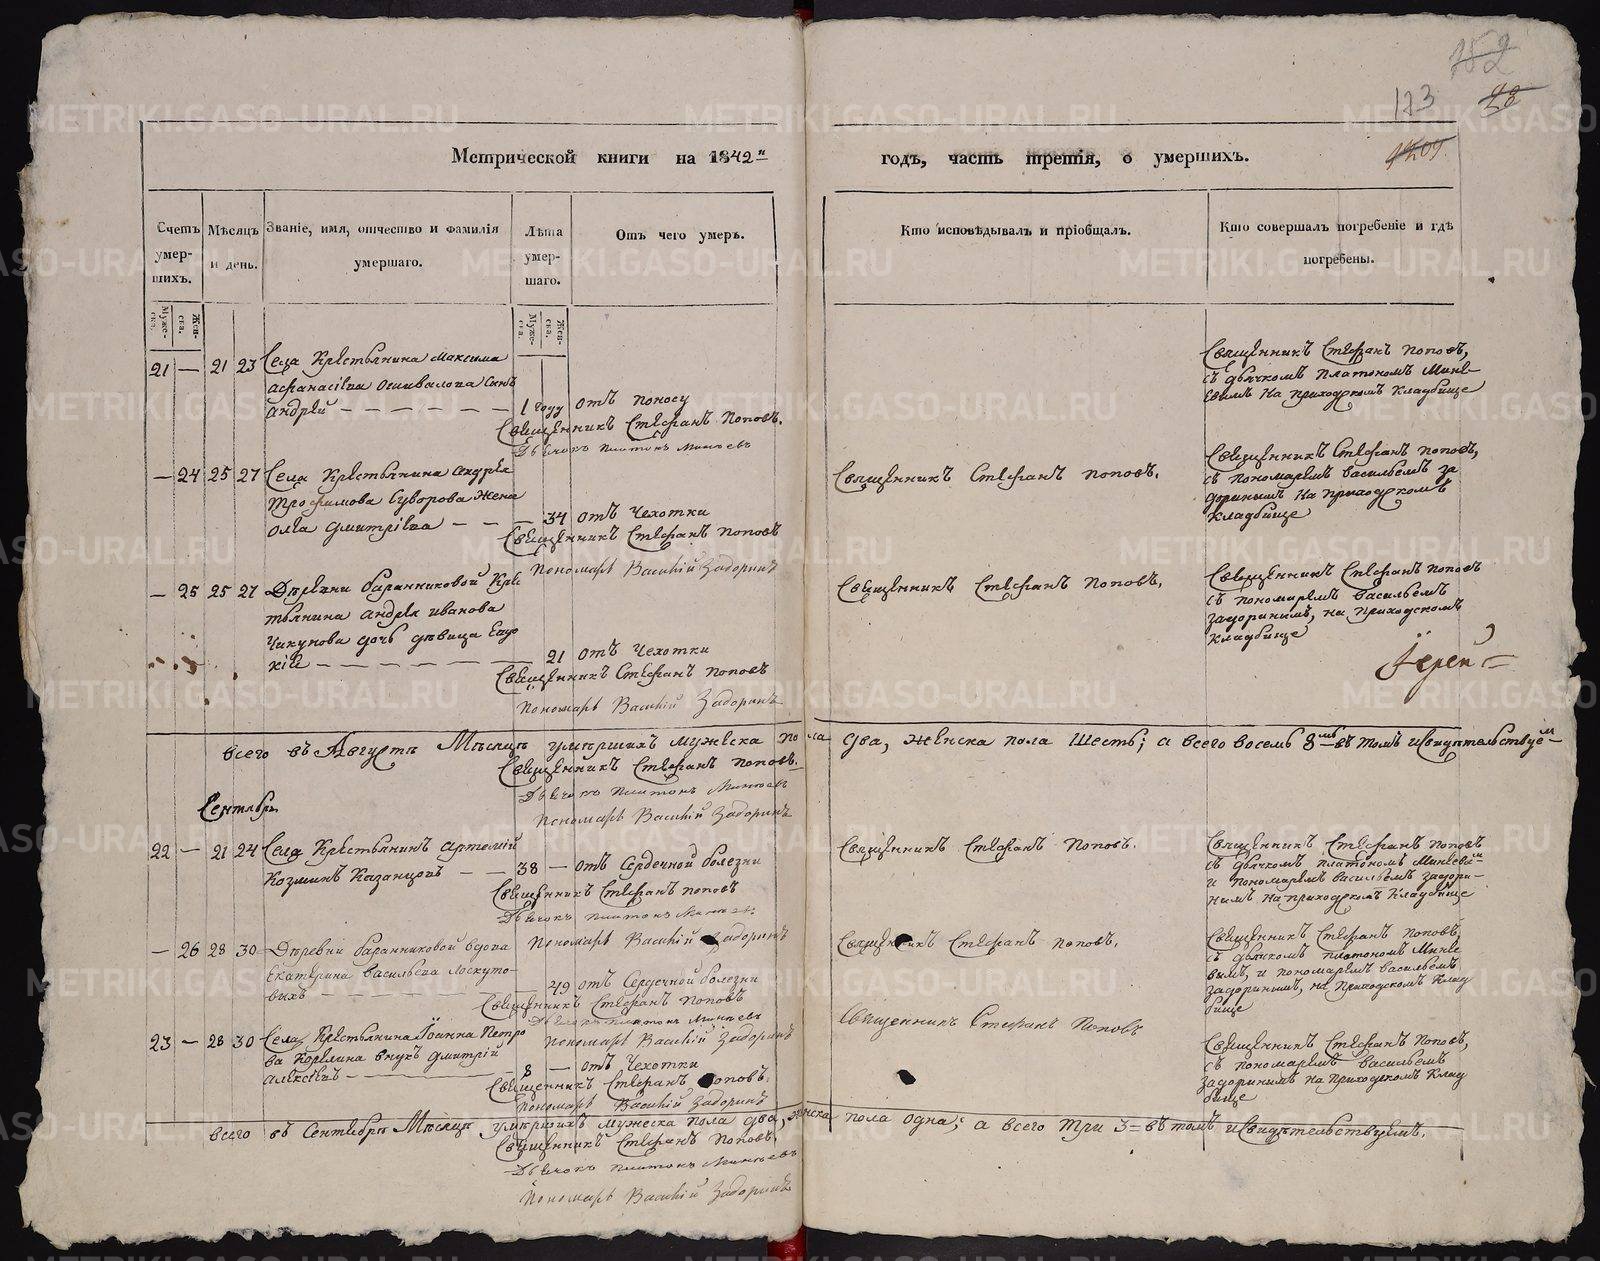 152
123
28
1809
Метрической книги на 1842й годъ, часть третія, о умершихъ.
Счетъ умер-шихъ.
Муже-ска.
Жен-ска.
Мѣсяцъ и день.
Званіе, имя, отчество и фамилія умершаго.
Лѣта умер-шаго.
Муже-ска.
Жен-ска.
Отъ чего умеръ.
Кто исповѣдывалъ и пріобщалъ.
Кто совершалъ погребеніе и гдѣ погребены.
21 — 21 23 Села Крестьянина Максима
Афанасьева Осинвалова Сынъ
Андрей — 1 году отъ поноса
Священникъ Стефанъ Поповъ.
Дьячокъ Платонъ Минѣевъ
Священникъ Стефанъ Поповъ,
съ дьячкомъ Платономъ Минѣ-
евымъ на приходскомъ кладбище
— 24 25 27 Села Крестьянина Андрея
Трофимова Суворова жена
Дмитріева — 34 отъ Чехотки
Священникъ Стефанъ Поповъ
Пономарь Василій Задоринъ
Священникъ Стефанъ Поповъ.
Священникъ Стефанъ Поповъ,
съ пономаремъ Васильемъ За
доринымъ на приходскомъ
кладбище
— 25 25 27 Деревни Баранниковой Кре
стьянина Андрея Иванова
Чикунова дочь дѣвица Евдо
кія — 21 отъ Чехотки
Священникъ Стефанъ Поповъ
Пономарь Василій Задоринъ
Священникъ Стефанъ Поповъ.
Священникъ Стефанъ Поповъ
съ пономаремъ Васильемъ
Задоринымъ, на приходскомъ
кладбище
Іерей
всего въ Августѣ Мѣсяцѣ умершихъ мужеска пола два, женска пола шесть; а всего восемь 8мь въ томъ и свидѣтельствуемъ
Священникъ Стефанъ Поповъ.
Дьячокъ Платонъ Минѣевъ
Пономарь Василій Задоринъ
Сентябрь
22 — 21 24 Села Крестьянинъ Артемій
Козминъ Казанцовъ — 38 — отъ Сердечной болезни
Священникъ Стефанъ Поповъ
Дьячокъ Платонъ Минѣевъ
Пономарь Василій Задоринъ
Священникъ Стефанъ Поповъ.
Священникъ Стефанъ Поповъ
съ дьячкомъ Платономъ Минѣевымъ
и пономаремъ Васильемъ Задори-
нымъ на приходскомъ кладбище
— 26 28 30 Деревни Баранниковой вдова
Екатерина Васильева Лоскуто-
выхъ — 49 отъ Сердечной болезни
Священникъ Стефанъ Поповъ
Дьячокъ Платонъ Минѣевъ
Пономарь Василій Задоринъ
Священникъ Стефанъ Поповъ.
Священникъ Стефанъ Поповъ,
съ дьячкомъ Платономъ Минѣе
вымъ, и пономаремъ Васильемъ
Задоринымъ, на приходскомъ клад
бище
23 — 28 30 Села Крестьянина Іоанна Петро
ва Корелина внукъ Дмитрій
Алексѣевъ — 8 — отъ Чехотки
Священникъ Стефанъ Поповъ.
Пономарь Василій Задоринъ
Священникъ Стефанъ Поповъ
Священникъ Стефанъ Поповъ,
съ пономаремъ Васильемъ
Задоринымъ на приходскомъ клад
бище
всего въ Сентябрѣ Мѣсяцѣ умершихъ мужеска пола два, женска пола одна; а всего три 3 = въ томъ и свидѣтельствуемъ.
Священникъ Стефанъ Поповъ.
Дьячокъ Платонъ Минѣевъ
Пономарь Василій Задоринъ
METRIKI.GASO-URAL.RU